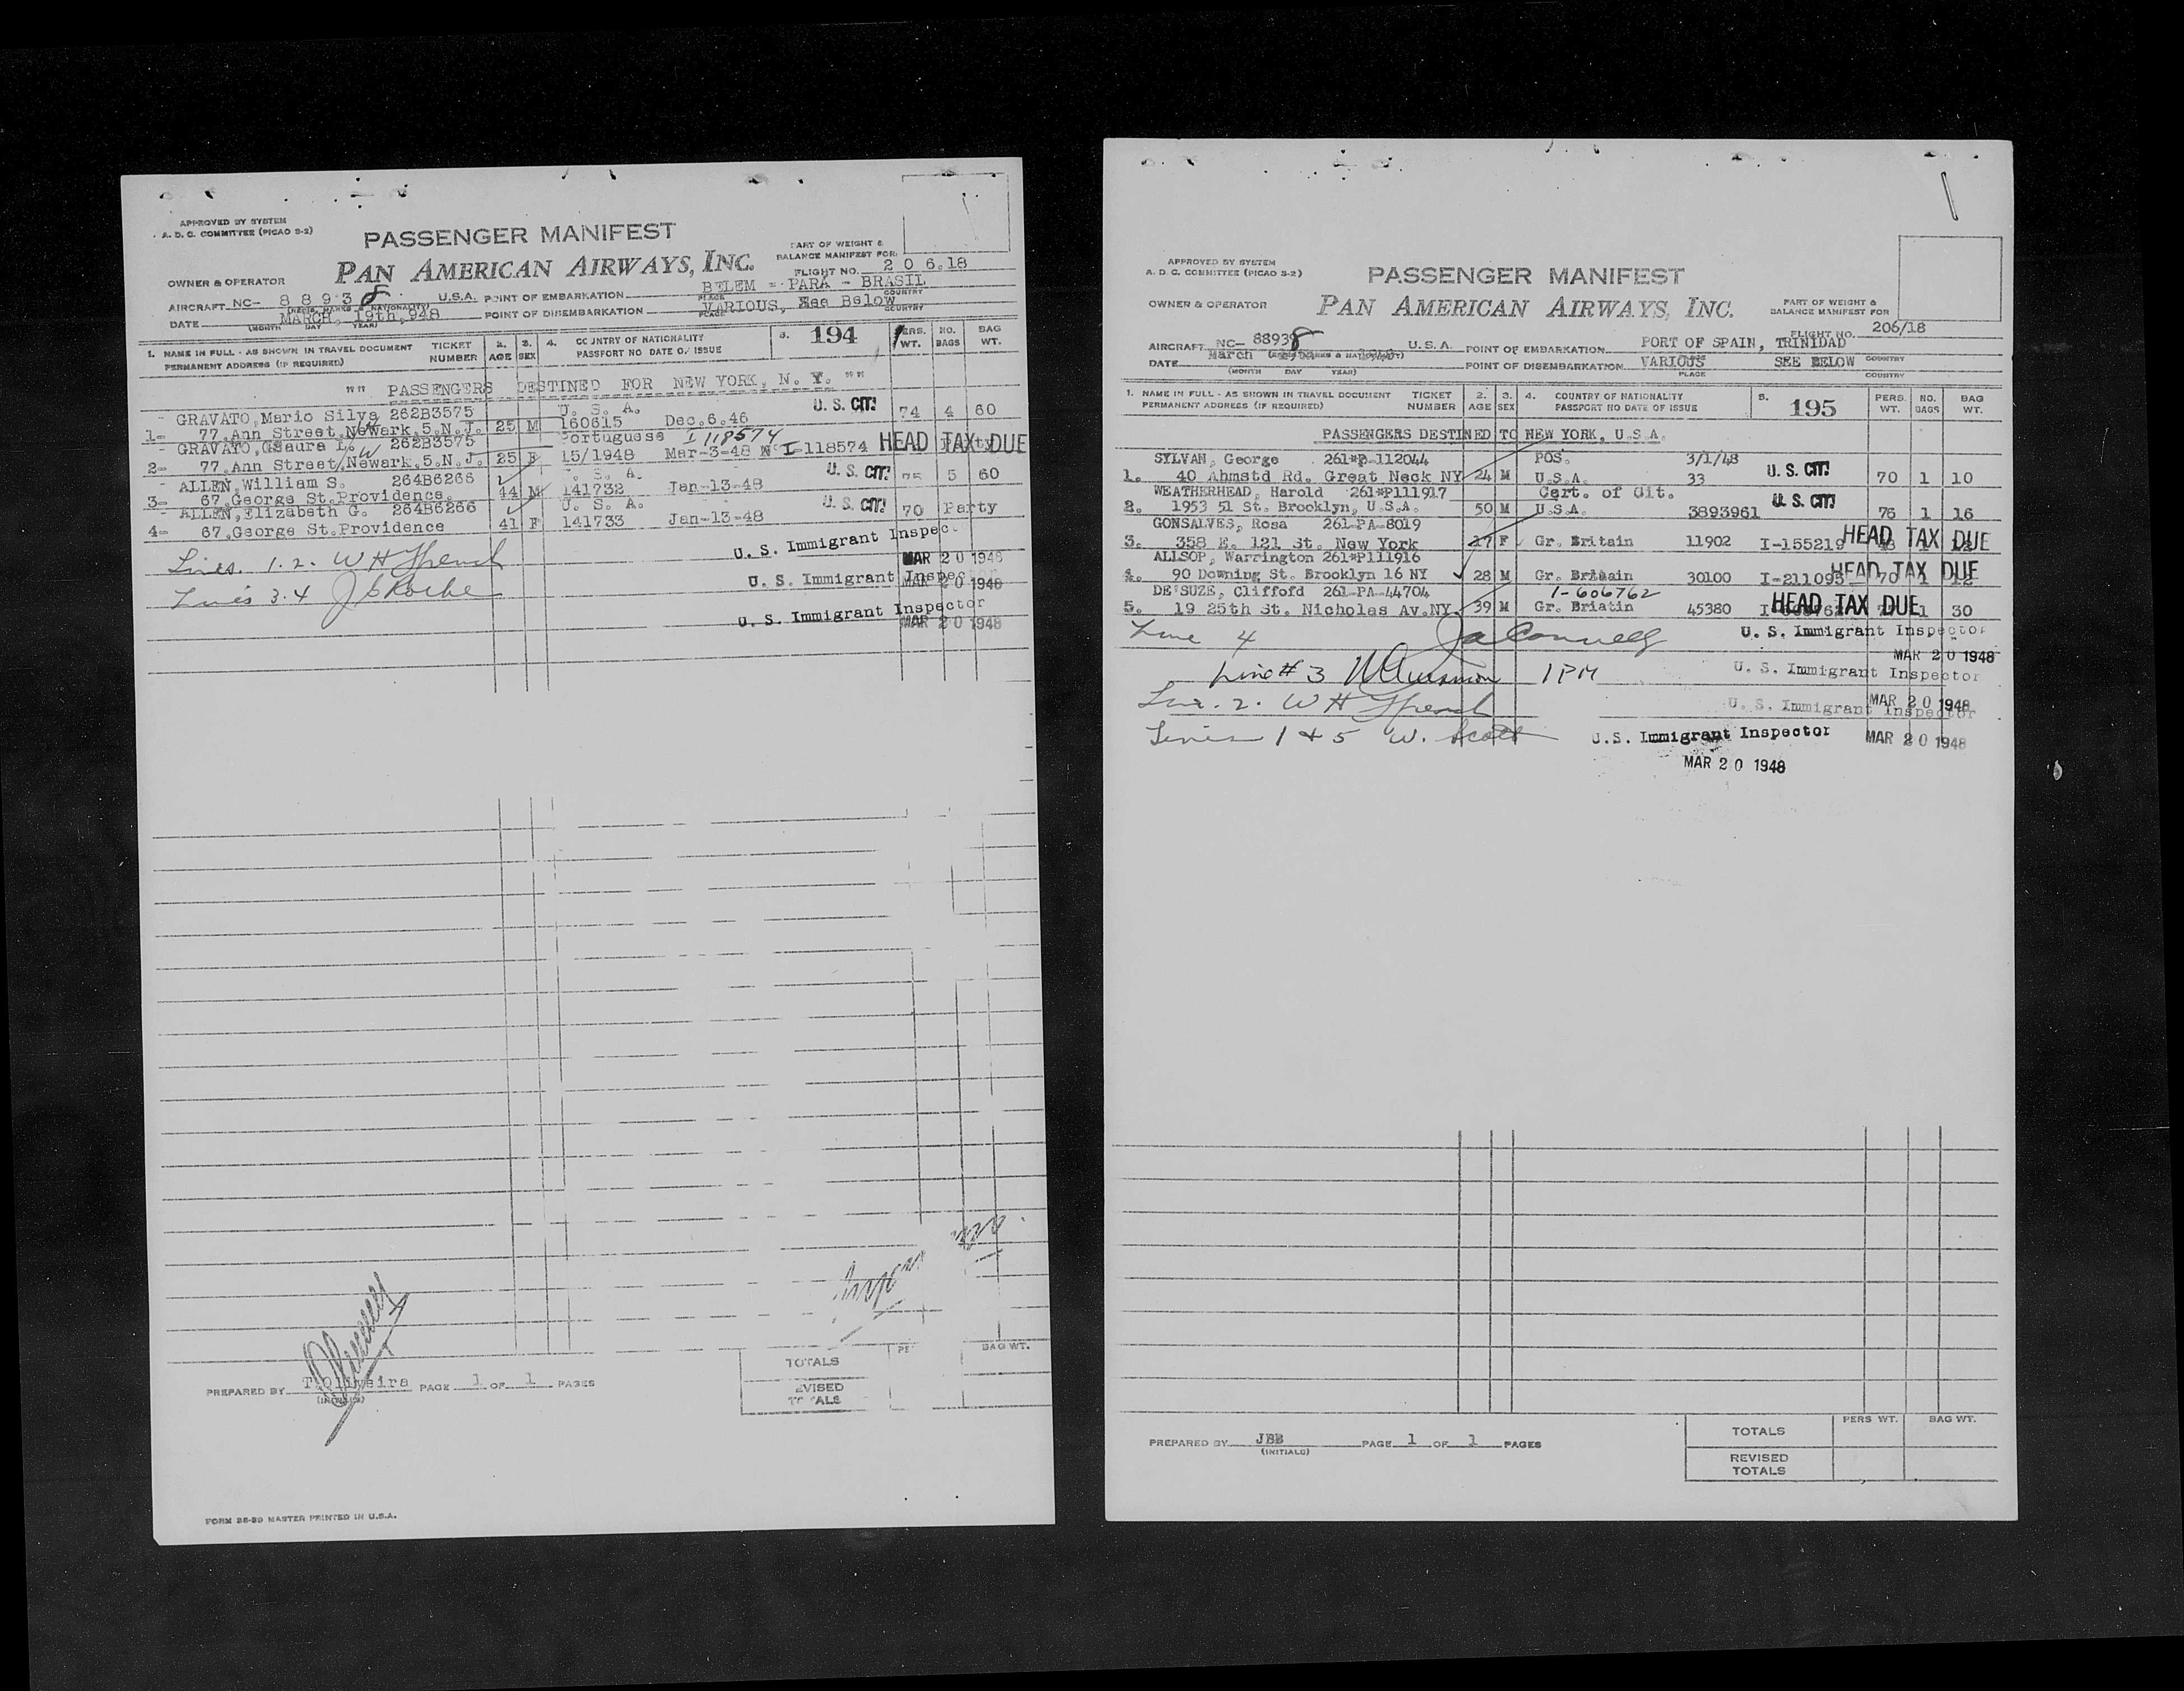 APPROVED BY SYSTEM
A. D. C. COMMITTEE (PICAO S-2)
PASSENGER MANIFEST
PART OF WEIGHT &
BALANCE MANIFEST FOR
OWNER & OPERATOR
PAN AMERICAN AIRWAYS, INC.
FLIGHT NO. 2 0 6.18
BELEM - PARA - BRASIL
AIRCRAFT NC- 8 8 9 3 8 U.S.A. POINT OF EMBARKATION
PLACE COUNTRY
VARIOUS, See Below
DATE MARCH, 19th,948 POINT OF DISEMBARKATION
(MONTH DAY YEAR) PLACE COUNTRY
1. NAME IN FULL - AS SHOWN IN TRAVEL DOCUMENT TICKET NUMBER 2. AGE 3. SEX 4. COUNTRY OF NATIONALITY 5. 194 PERS. WT. NO. BAGS BAG WT.
PERMANENT ADDRESS (IF REQUIRED) PASSPORT NO DATE OF ISSUE
"" PASSENGERS DESTINED FOR NEW YORK, N. Y. ""
GRAVATO,Mario Silva 262B3575 U. S. A. U. S. CIT!
1- 77.Ann Street,Newark,5.N.J. 25 M 160615 Dec.6.46 74 4 60
GRAVATO, L. 262B3575 Portuguese I 118574
2- 77.Ann Street,Newark.5.N.J. 25 F 15/1948 Mar-3-48 I-118574 HEAD TAX DUE
ALLEN,William S. 264B6266 U. S. A. U. S. CIT!
3- 67.George St.Providence. 44 M 141732 Jan-13-48 75 5 60
ALLEN,Elizabeth G. 264B6266 U. S. A. U. S. CIT!
4- 67.George St.Providence 41 F 141733 Jan-13-48 70 Party
Lines. 1. 2. W H U. S. Immigrant Inspec
MAR 2 0 1948
Lines 3. 4 J Roche U. S. Immigrant Inspec
MAR 2 0 1948
U. S. Immigrant Inspector
MAR 2 0 1948
TOTALS BAG WT.
PREPARED BY T.Oliveira PAGE 1 OF 1 PAGES
(INITIALS)
REVISED
TOTALS
FORM 36-39 MASTER PRINTED IN U.S.A.
APPROVED BY SYSTEM
A. D. C. COMMITTEE (PICAO S-2)
PASSENGER MANIFEST
OWNER & OPERATOR
PAN AMERICAN AIRWAYS, INC.
PART OF WEIGHT &
BALANCE MANIFEST FOR
FLIGHT NO. 206/18
AIRCRAFT NC- 88938 U.S.A. POINT OF EMBARKATION PORT OF SPAIN, TRINIDAD
PLACE COUNTRY
DATE March POINT OF DISEMBARKATION VARIOUS SEE BELOW
(MONTH DAY YEAR) PLACE COUNTRY
1. NAME IN FULL - AS SHOWN IN TRAVEL DOCUMENT TICKET NUMBER 2. AGE 3. SEX 4. COUNTRY OF NATIONALITY 5. 195 PERS. WT. NO. BAGS BAG WT.
PERMANENT ADDRESS (IF REQUIRED) PASSPORT NO DATE OF ISSUE
PASSENGERS DESTINED TO NEW YORK, U.S.A.
SYLVAN, George 261*P-112044 POS. 3/1/48
1. 40 Ahmstd Rd. Great Neck NY 24 M U.S.A. 33 U. S. CIT! 70 1 10
WEATHERHEAD, Harold 261*P111917 Cert. of Cit.
2. 1953 51 St. Brooklyn, U.S.A. 50 M U.S.A. 3893961 U. S. CIT! 76 1 16
GONSALVES, Rosa 261-PA-8019
3. 358 E. 121 St. New York 27 F Gr. Britain 11902 I-155219 HEAD TAX DUE
ALLSOP, Warrington 261*P111916
4. 90 Downing St. Brooklyn 16 NY 28 M Gr. Britain 30100 I-211095 HEAD TAX DUE 70 1 12
DE'SUZE, Clifford 261-PA-44704 1-606762
5. 19 25th St. Nicholas Av.NY. 39 M Gr. Briatin 45380 HEAD TAX DUE 1 30
Line 4 U. S. Immigrant Inspector
MAR 2 0 1948
Line # 3 1 PM U. S. Immigrant Inspector
MAR 2 0 1948
Line. 2. W H U. S. Immigrant Inspector
Lines 1 & 5 W. Scott U.S. Immigrant Inspector MAR 2 0 1948
MAR 2 0 1948
PERS WT. BAG WT.
TOTALS
PREPARED BY JBB PAGE 1 OF 1 PAGES
(INITIALS)
REVISED
TOTALS